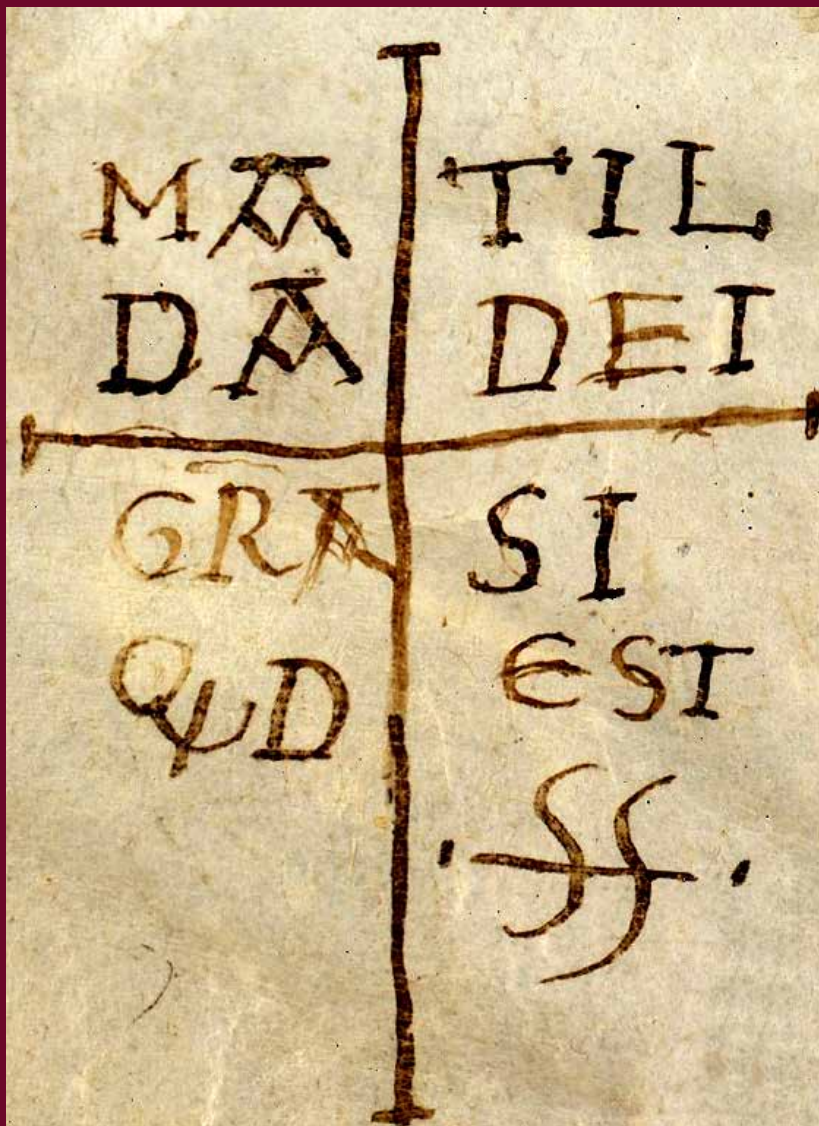 MA TIL
DA DEI
GRA SI
QUD EST
SS